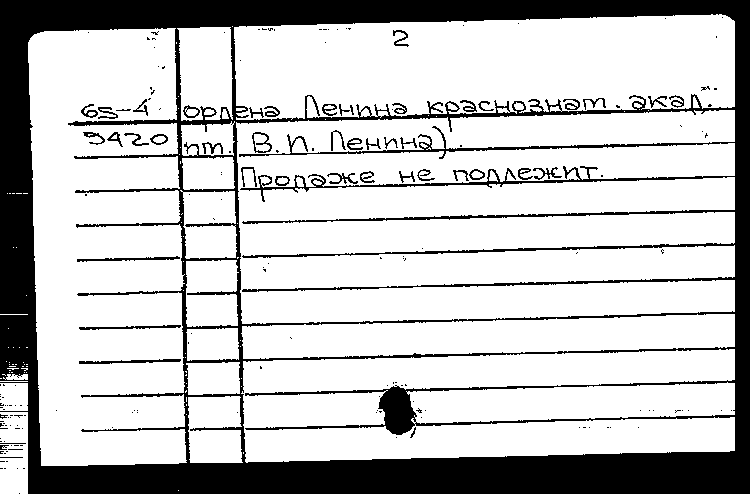 2
65-4 ордена Ленина краснознам. акад.
9420 им. В.И. Ленина)
Продаже не подлежит.